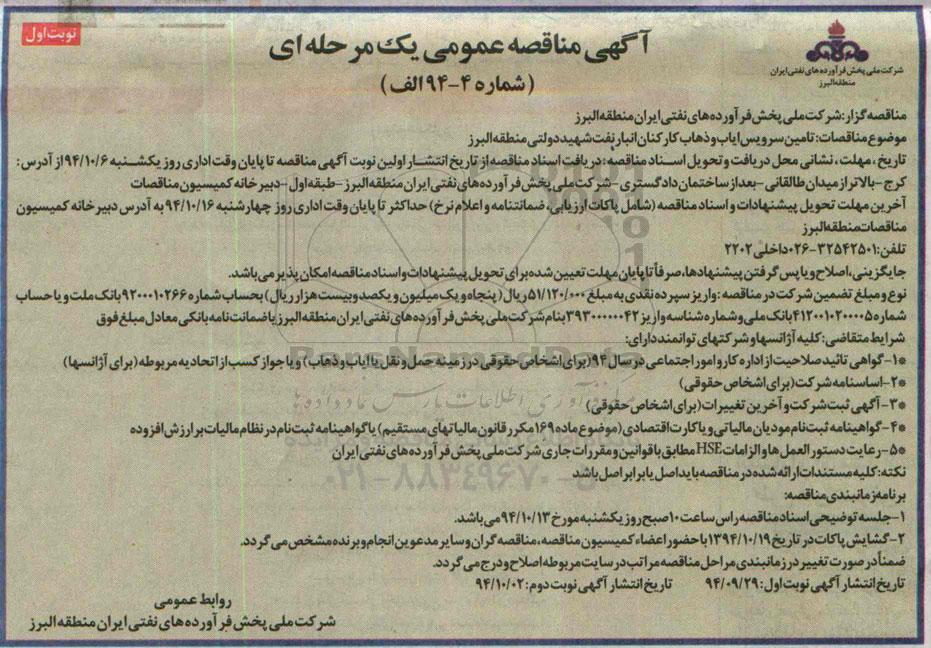 نوبت اول
آگهی مناقصه عمومی یک مرحله ای
(شماره ۴-۹۴الف)
شرکت ملی پخش فرآورده های نفتی ایران
منطقه البرز
مناقصه گزار: شرکت ملی پخش فرآورده های نفتی ایران منطقه البرز
موضوع مناقصات: تامین سرویس ایاب وذهاب کارکنان انبار نفت شهید دولتی منطقه البرز
تاریخ، مهلت، نشانی محل دریافت و تحویل اسناد مناقصه: دریافت اسناد مناقصه از تاریخ انتشار اولین نوبت آگهی مناقصه تا پایان وقت اداری روز یکشنبه ۹۴/۱۰/۶ از آدرس:
کرج-بالاتر از میدان طالقانی-بعد از ساختمان دادگستری-شرکت ملی پخش فرآورده های نفتی ایران منطقه البرز-طبقه اول-دبیرخانه کمیسیون مناقصات
آخرین مهلت تحویل پیشنهادات و اسناد مناقصه (شامل پاکات ارزیابی، ضمانتنامه و اعلام نرخ) حداکثر تا پایان وقت اداری روز چهارشنبه ۹۴/۱۰/۱۶ به آدرس دبیرخانه کمیسیون
مناقصات منطقه البرز
تلفن: ۳۲۵۴۲۵۰۱-۰۲۶ داخلی ۲۲۰۲
جایگزینی، اصلاح و یا پس گرفتن پیشنهادها، صرفاً تا پایان مهلت تعیین شده برای تحویل پیشنهادات و اسناد مناقصه امکان پذیر می باشد.
نوع و مبلغ تضمین شرکت در مناقصه: واریز سپرده نقدی به مبلغ ۵۱/۱۲۰/۰۰۰ ریال (پنجاه و یک میلیون و یکصد و بیست هزار ریال) بحساب شماره ۹۲۰۰۰۱۰۲۶۶ بانک ملت و یا حساب
شماره ۴۱۲۰۰۱۰۲۰۰۰۵ بانک ملی و شماره شناسه واریز ۳۹۳۰۰۰۰۰۰۴۲ بنام شرکت ملی پخش فرآورده های نفتی ایران منطقه البرز یا ضمانت نامه بانکی معادل مبلغ فوق
شرایط متقاضی: کلیه آژانسها و شرکتهای توانمند دارای:
*۱-گواهی تائید صلاحیت از اداره کار و امور اجتماعی در سال ۹۴ (برای اشخاص حقوقی در زمینه حمل و نقل یا ایاب و ذهاب) و یا جواز کسب از اتحادیه مربوطه (برای آژانسها)
*۲-اساسنامه شرکت (برای اشخاص حقوقی)
*۳-آگهی ثبت شرکت و آخرین تغییرات (برای اشخاص حقوقی)
*۴-گواهینامه ثبت نام مودیان مالیاتی و یا کارت اقتصادی (موضوع ماده ۱۶۹ مکرر قانون مالیاتهای مستقیم) یا گواهینامه ثبت نام در نظام مالیات بر ارزش افزوده
*۵-رعایت دستورالعمل ها و الزامات HSE مطابق با قوانین و مقررات جاری شرکت ملی پخش فرآورده های نفتی ایران
نکته: کلیه مستندات ارائه شده در مناقصه باید اصل یا برابر اصل باشد
برنامه زمانبندی مناقصه:
۱-جلسه توضیحی اسناد مناقصه راس ساعت ۱۰ صبح روز یکشنبه مورخ ۹۴/۱۰/۱۳ می باشد.
۲-گشایش پاکات در تاریخ ۱۳۹۴/۱۰/۱۹ با حضور اعضاء کمیسیون مناقصه، مناقصه گران و سایر مدعوین انجام و برنده مشخص می گردد.
ضمناً در صورت تغییر در زمانبندی مراحل مناقصه مراتب در سایت مربوطه اصلاح و درج می گردد.
تاریخ انتشار آگهی نوبت اول: ۹۴/۰۹/۲۹ تاریخ انتشار آگهی نوبت دوم: ۹۴/۱۰/۰۲
روابط عمومی
شرکت ملی پخش فرآورده های نفتی ایران منطقه البرز
۰۲۱-۸۸۳۴۹۶۷۰